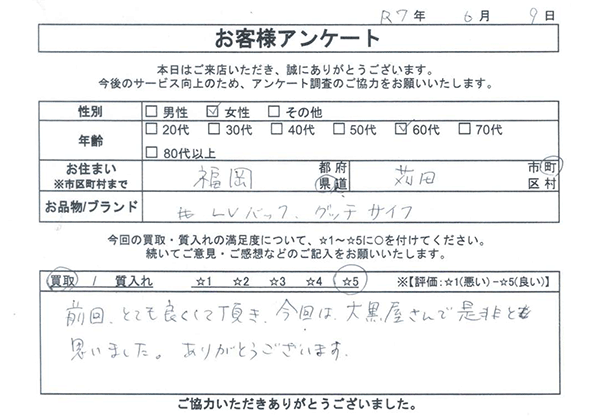 R7年 6月 9日
お客様アンケート
本日はご来店いただき、誠にありがとうございます。
今後のサービス向上のため、アンケート調査のご協力をお願いいたします。
性別 □男性 ☑女性 □その他
年齢 □20代 □30代 □40代 □50代 ☑60代 □70代
□80代以上
お住まい ※市区町村まで 福岡 都府県道 苅田 市町区村
お品物/ブランド LVバック、グッチ サイフ
今回の買取・質入れの満足度について、☆1~☆5に○を付けてください。
続いてご意見・ご感想などのご記入をお願いいたします。
買取 / 質入れ ☆1 ☆2 ☆3 ☆4 ☆5 ※【評価:☆1(悪い)-☆5(良い)】
前回、とても良くして頂き、今回は、大黒屋さんで是非と
思いました。ありがとうございます.
ご協力いただきありがとうございました。